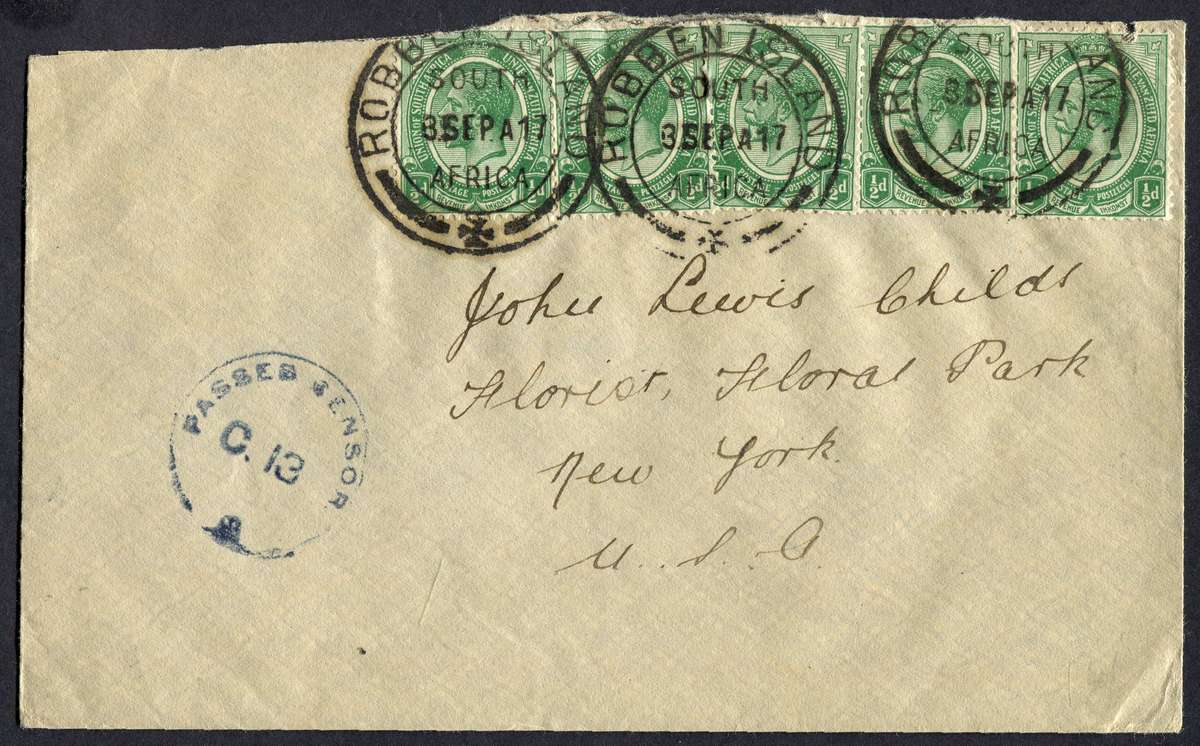 ROBBEN ISLAND
SOUTH
3SEPA17
AFRICA
ROBBEN ISLAND
SOUTH
3SEPA17
AFRICA
SOUTH
3SEPA17
AFRICA
UNION OF SOUTH AFRICA
½d
POSTZEGEL
REVENUE INKOMST
½d
John Lewis Childs
Florist, Floral Park
New York.
U.S.A.
PASSED CENSOR
C.13